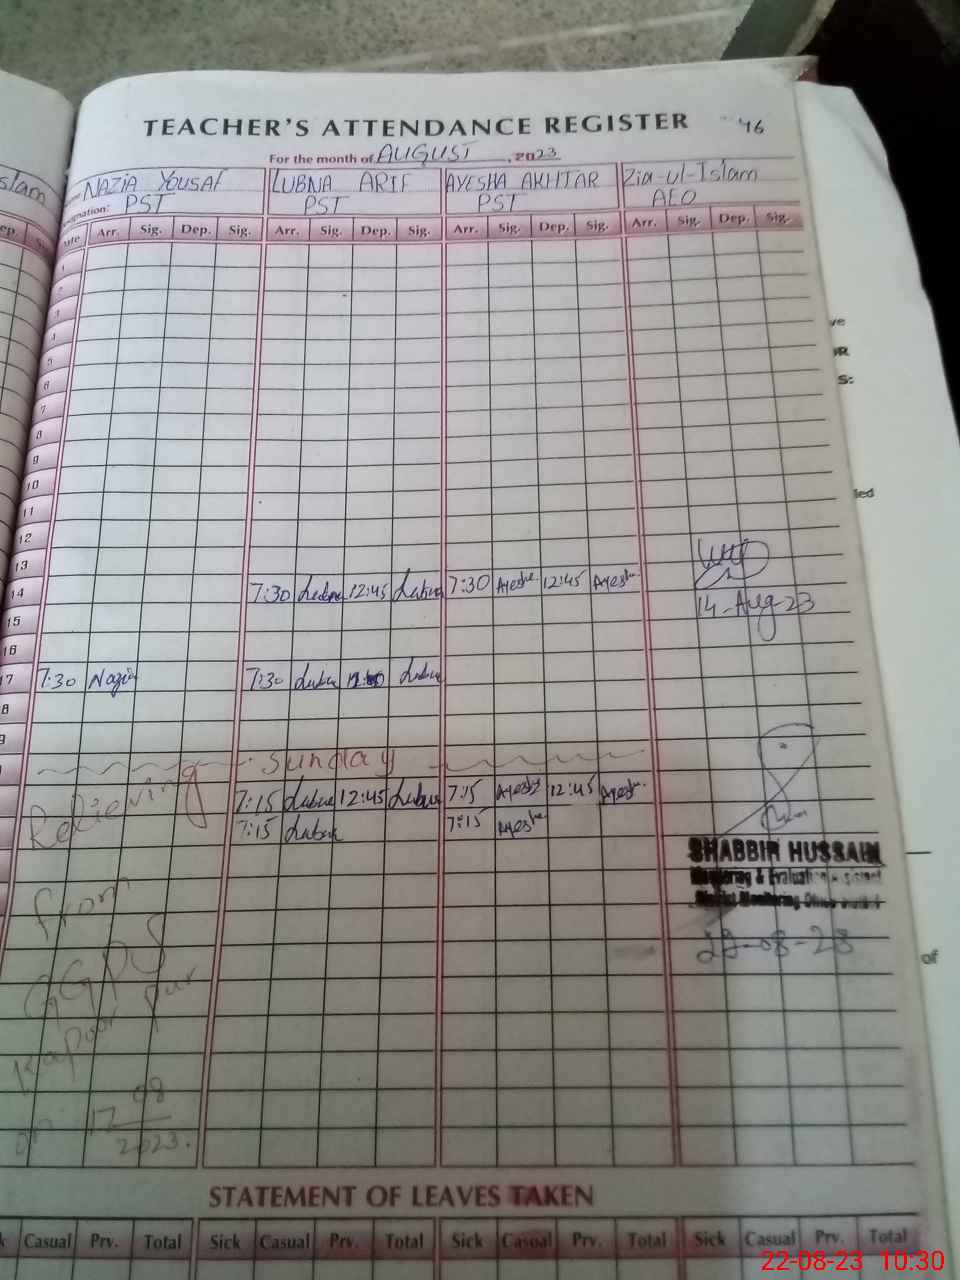 TEACHER'S ATTENDANCE REGISTER 46
For the month of AUGUST, 2023
slam NAZIA YOUSAF LUBNA ARIF AYESHA AKHTAR Zia-ul-Islam
Designation: PST PST PST AEO
Date Arr. Sig. Dep. Sig. Arr. Sig. Dep. Sig. Arr. Sig. Dep. Sig. Arr. Sig. Dep. Sig.
1
2
3
4
5
6
7
8
9
10
11
12
13
14 7:30 Lubna 12:45 Lubna 7:30 Ayesha 12:45 Ayesha
15 14-Aug-23
16
17 7:30 Nazia 7:30 Lubna Lubna
8
9
Sunday
Relieving 7:15 Lubna 12:45 Lubna 7:15 Ayesha 12:45 Ayesha
7:15 Lubna 7:15 Ayesha
SHABBIR HUSSAIN
Monitoring & Evaluation Assistant
District Monitoring Office
from
22-08-23
GGPS
Kapoor pur
on 17 08
2023.
STATEMENT OF LEAVES TAKEN
k Casual Prv. Total Sick Casual Prv. Total Sick Casual Prv. Total Sick Casual Prv. Total
ve
OR
S:
led
of
22-08-23 10:30